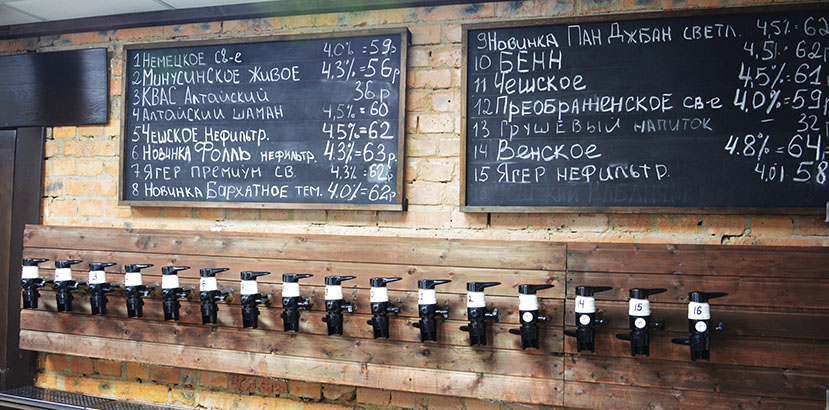 1 Немецкое св-е 4,0% = 59р
2 Минусинское живое 4.3% = 56р
3 КВАС Алтайский 36р
4 Алтайский шаман 4,5% = 60
5 Чешское нефильтр. 4.5% = 62
6 Новинка Фолль нефильтр. 4.3% = 63р
7 Ягер премиум св. 4.3% = 58
8 Новинка Бархатное тем. 4.0% = 62р
9 Новинка Пан Джбан светл. 4,5% = 62
10 БЕНН 4,5% = 64
11 Чешское 4,5% = 61
12 Преображенское св-е 4,0% = 59р
13 Грушёвый напиток 32
14 Венское 4.8% = 64
15 Ягер нефильтр. 58
14 15 16